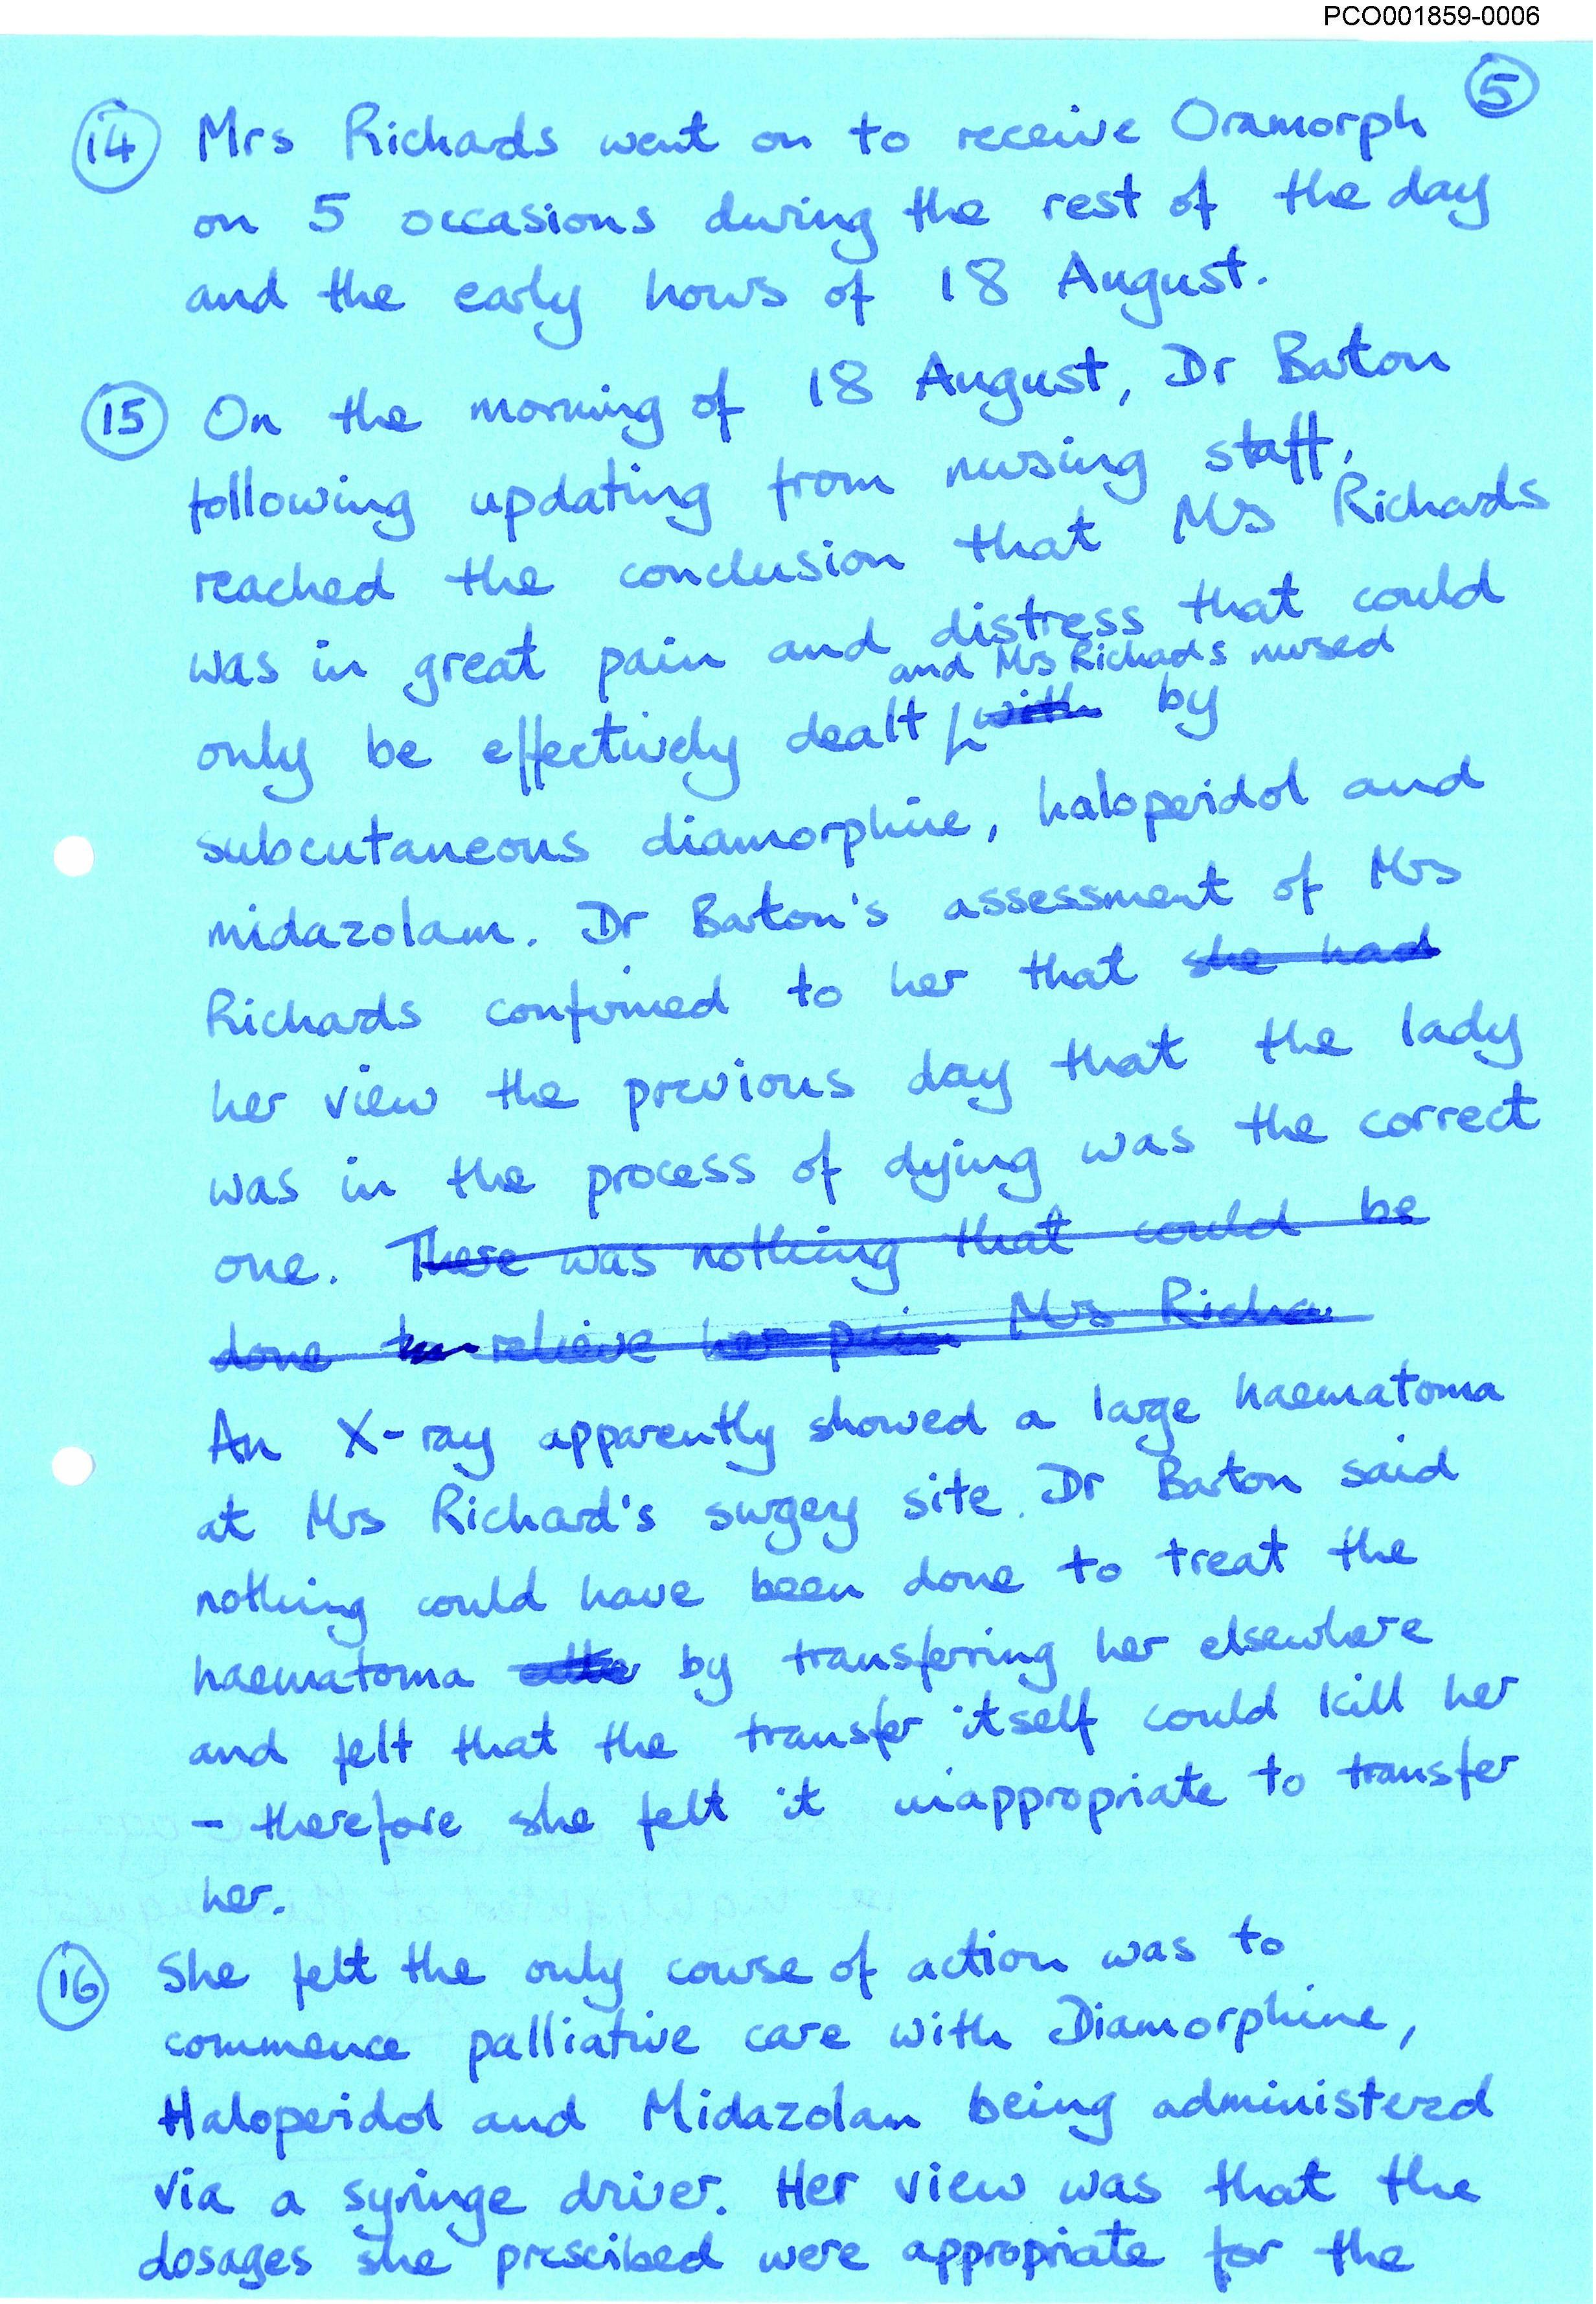 PCO001859-0006
5
14 Mrs Richards went on to receive Oramorph
on 5 occasions during the rest of the day
and the early hours of 18 August.
15 On the morning of 18 August, Dr Barton
following updating from nursing staff,
reached the conclusion that Mrs Richards
was in great pain and distress that could
and Mrs Richards nursed
only be effectively dealt with by
subcutaneous diamorphine, haloperidol and
midazolam. Dr Barton's assessment of Mrs
Richards confirmed to her that she had
her view the previous day that the lady
was in the process of dying was the correct
one. There was nothing that could be
done to relieve her pain Mrs Richa
An X-ray apparently showed a large haematoma
at Mrs Richard's surgey site. Dr Barton said
nothing could have been done to treat the
haematoma by transferring her elsewhere
and felt that the transfer itself could kill her
- therefore she felt it inappropriate to transfer
her.
16 She felt the only course of action was to
commence palliative care with Diamorphine,
Haloperidol and Midazolam being administered
via a syringe driver. Her view was that the
dosages she prescibed were appropriate for the